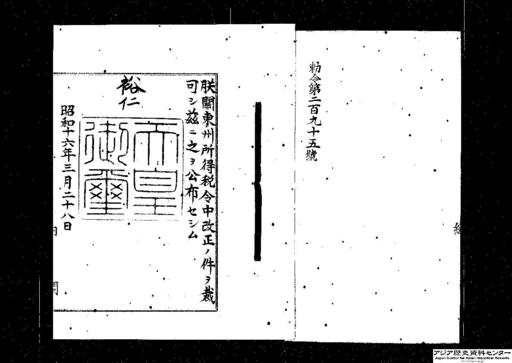 勅令第二百九十五號
朕關東州所得税令中改正ノ件ヲ裁
可シ茲ニ之ヲ公布セシム
裕仁
天皇
御璽
昭和十六年三月二十八日
内閣
アジア歴史資料センター
Japan Center for Asian Historical Records